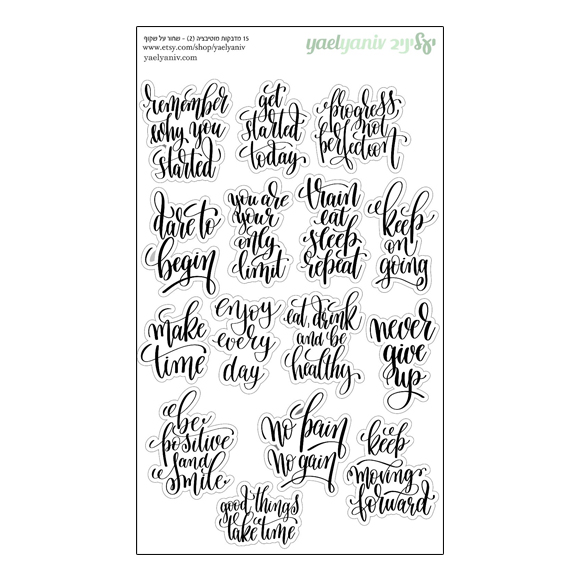 15 מדבקות מוטיבציה (2) - שחור על שקוף
www.etsy.com/shop/yaelyaniv
yaelyaniv.com
yaelyaniv יעליניב
remember
why you
started
get
started
today
progress
not
perfection
dare to
begin
you are
your
only
limit
train
eat
sleep
repeat
keep
on
going
make
time
enjoy
every
day
eat, drink
and be
healthy
never
give
up
be
positive
and
smile
no pain
no gain
keep
moving
forward
good things
take time